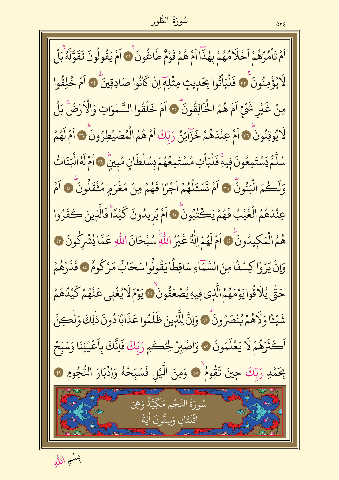 ٥٢٤ سُورَةُ الطُّورِ
اَمْ تَأْمُرُهُمْ اَحْلَامُهُمْ بِهٰذَٓا اَمْ هُمْ قَوْمٌ طَاغُونَۚ ﴿٣٢﴾ اَمْ يَقُولُونَ تَقَوَّلَهُۚ بَلْ
لَا يُؤْمِنُونَۚ ﴿٣٣﴾ فَلْيَأْتُوا بِحَد۪يثٍ مِثْلِه۪ٓ اِنْ كَانُوا صَادِق۪ينَۜ ﴿٣٤﴾ اَمْ خُلِقُوا
مِنْ غَيْرِ شَيْءٍ اَمْ هُمُ الْخَالِقُونَۜ ﴿٣٥﴾ اَمْ خَلَقُوا السَّمٰوَاتِ وَالْاَرْضَۚ بَلْ
لَا يُوقِنُونَۜ ﴿٣٦﴾ اَمْ عِنْدَهُمْ خَزَٓائِنُ رَبِّكَ اَمْ هُمُ الْمُصَۜيْطِرُونَۜ ﴿٣٧﴾ اَمْ لَهُمْ
سُلَّمٌ يَسْتَمِعُونَ ف۪يهِۚ فَلْيَأْتِ مُسْتَمِعُهُمْ بِسُلْطَانٍ مُب۪ينٍۜ ﴿٣٨﴾ اَمْ لَهُ الْبَنَاتُ
وَلَكُمُ الْبَنُونَۜ ﴿٣٩﴾ اَمْ تَسْـَٔلُهُمْ اَجْرًا فَهُمْ مِنْ مَغْرَمٍ مُثْقَلُونَۜ ﴿٤٠﴾ اَمْ
عِنْدَهُمُ الْغَيْبُ فَهُمْ يَكْتُبُونَۜ ﴿٤١﴾ اَمْ يُر۪يدُونَ كَيْدًاۜ فَالَّذ۪ينَ كَفَرُوا
هُمُ الْمَك۪يدُونَۜ ﴿٤٢﴾ اَمْ لَهُمْ اِلٰهٌ غَيْرُ اللّٰهِۜ سُبْحَانَ اللّٰهِ عَمَّا يُشْرِكُونَ ﴿٤٣﴾
وَاِنْ يَرَوْا كِسْفًا مِنَ السَّمَٓاءِ سَاقِطًا يَقُولُوا سَحَابٌ مَرْكُومٌ ﴿٤٤﴾ فَذَرْهُمْ
حَتّٰى يُلَاقُوا يَوْمَهُمُ الَّذ۪ي ف۪يهِ يُصْعَقُونَۙ ﴿٤٥﴾ يَوْمَ لَا يُغْن۪ي عَنْهُمْ كَيْدُهُمْ
شَيْـًٔا وَلَا هُمْ يُنْصَرُونَۜ ﴿٤٦﴾ وَاِنَّ لِلَّذ۪ينَ ظَلَمُوا عَذَابًا دُونَ ذٰلِكَ وَلٰكِنَّ
اَكْثَرَهُمْ لَا يَعْلَمُونَ ﴿٤٧﴾ وَاصْبِرْ لِحُكْمِ رَبِّكَ فَاِنَّكَ بِاَعْيُنِنَا وَسَبِّحْ
بِحَمْدِ رَبِّكَ ح۪ينَ تَقُومُۙ ﴿٤٨﴾ وَمِنَ الَّيْلِ فَسَبِّحْهُ وَاِدْبَارَ النُّجُومِ ﴿٤٩﴾
سُورَةُ النَّجْمِ مَكِّيَّةٌ وَهِيَ
اثْنَتَانِ وَسِتُّونَ اٰيَةً
بِسْمِ اللّٰهِ